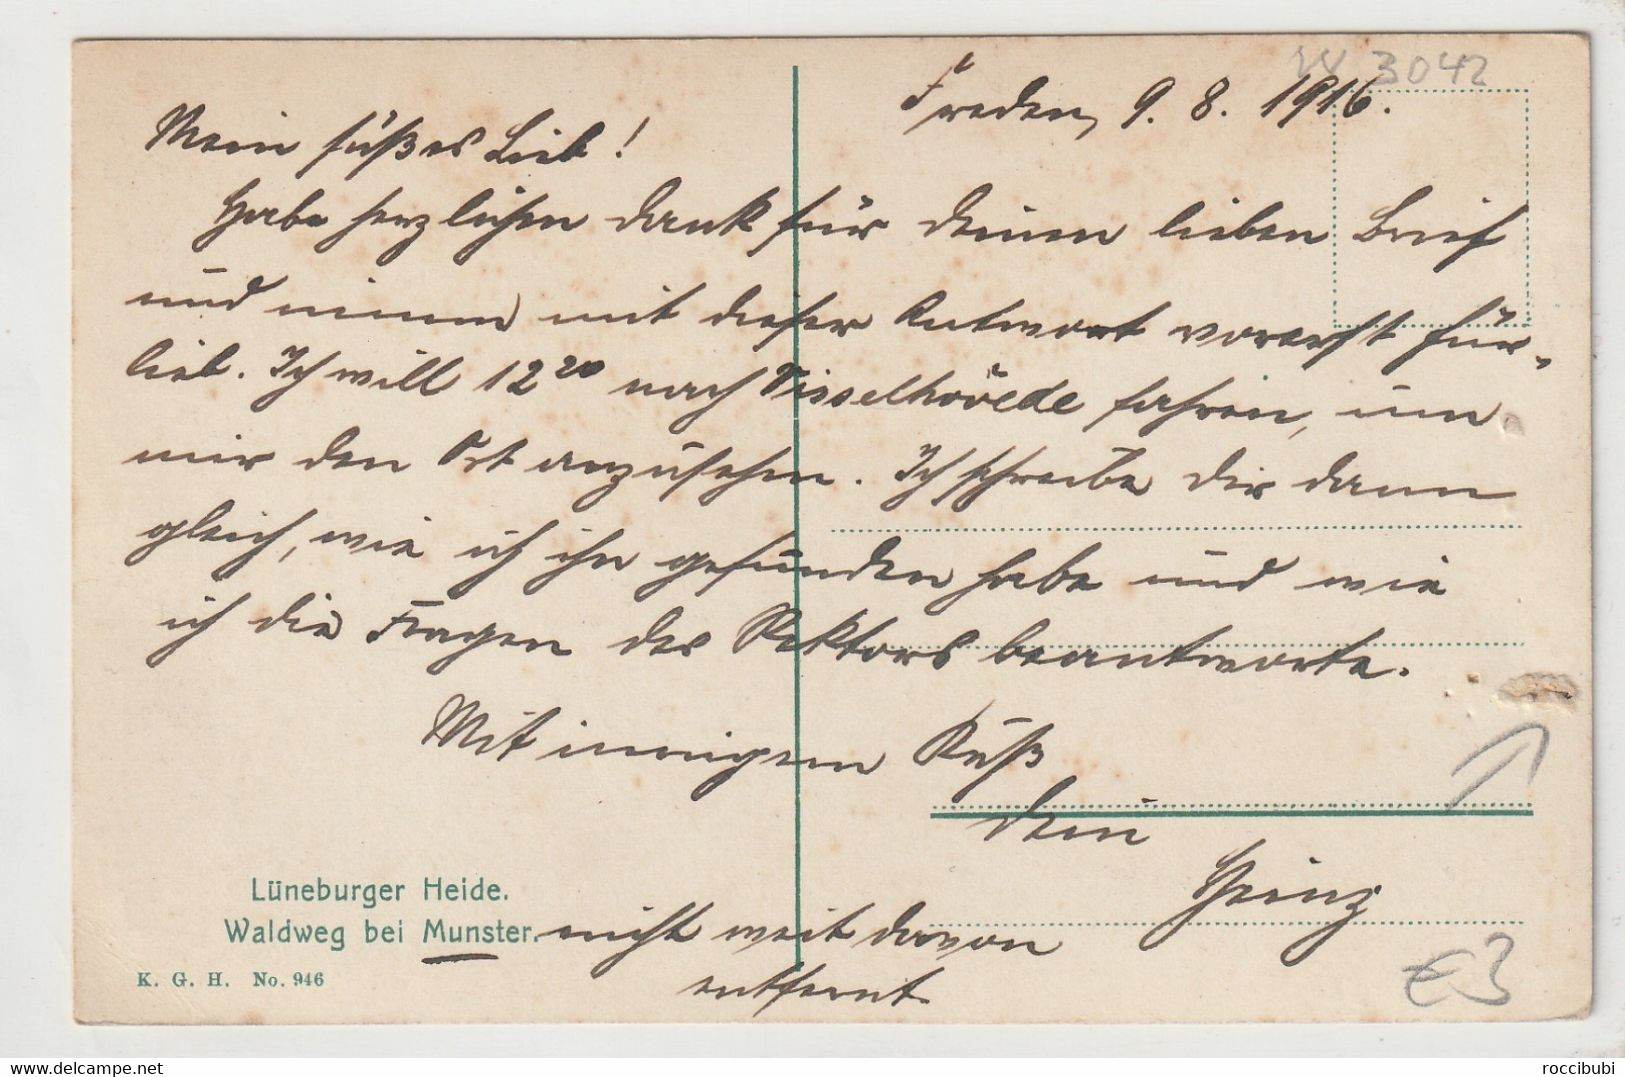 W 3042
Freden, 9. 8. 1916.
Mein süßes Lieb!
Habe herzlichen Dank für Deinen lieben Brief
und nimm mit dieser Antwort vorerst für-
lieb. Ich will 12 20 nach Visselhövede fahren, um
mir den Ort anzusehen. Ich schreibe Dir dann
gleich, wie ich ihn gefunden habe und wie
ich die Fragen des Rektors beantworte.
Mit innigem Kuß
Dein
Heinz
Lüneburger Heide.
Waldweg bei Munster. nicht weit davon
entfernt.
K. G. H. No. 946
€ 3
roccibubi